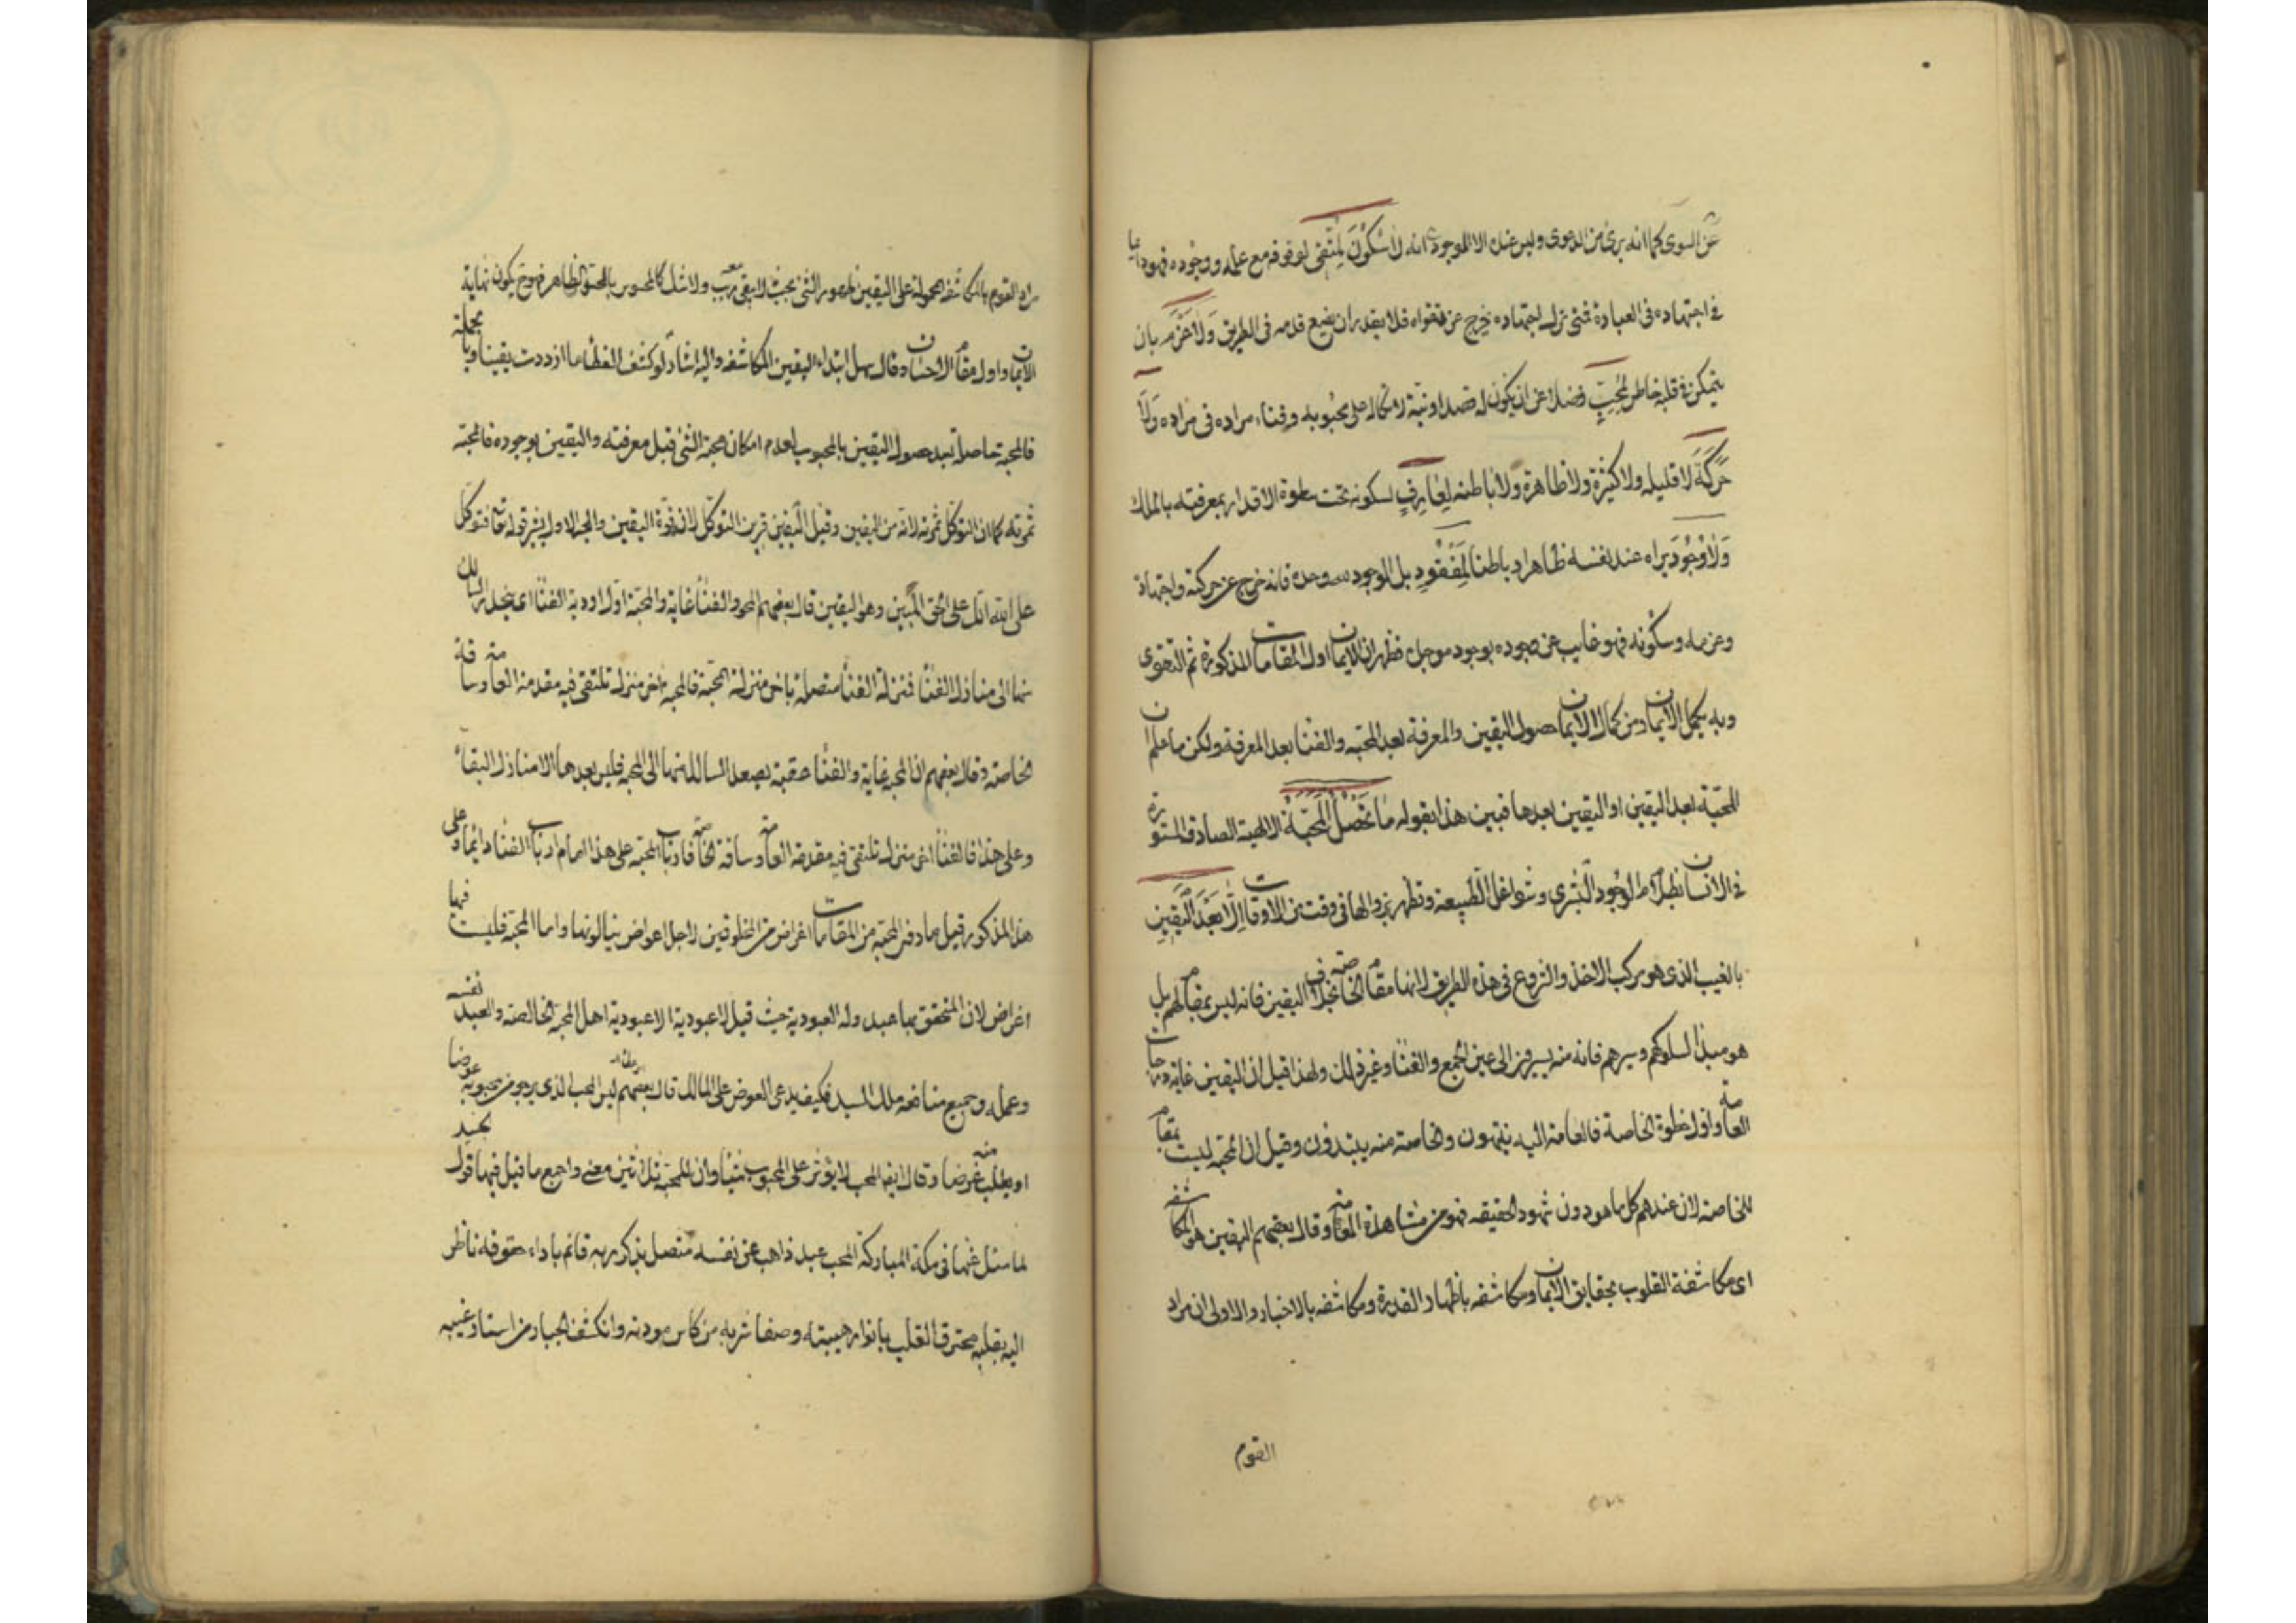 عن السوى كما انه برئ من الدعوى وليس عنده الا الموجود انه لا سكون لمتقى لوقوفه مع عمله ووجوده فهو دايما
فى اجتهاده فى العبادة فمتى ترك اجتهاده خرج عن تقواه فلا يقدر ان يضع قدمه فى الطريق ولا عزم بان
يتمكن فى قلبه خاطر لمحب فضلا عن ان يكون له قصد او نية لاتكاله على محبوبه وفناء مراده فى مراده ولا
حركة لا قليله ولا كثيرة ولا ظاهرة ولا باطنه لعارف لسكونه تحت سطوة الاقدار بمعرفته بالملك
ولا وجود يراه عند نفسه ظاهرا و باطنا لمفقود بل الوجود لله وحده فانه خرج عن حركته واجتهاده
وعزمه وسكونه فهو غايب عن وجوده بوجود موجده فظهر ان الايمان اول المقامات المذكورة ثم التقوى
وبه يكمل الايمان ومن كمال الايمان حصول اليقين والمعرفة بعد المحبه والفنا بعد المعرفة ولكن ما علم ان
المحبة بعد اليقين او اليقين بعدها فبين هذا بقوله ما تحصل المحبة الالهية الصادقة المستورة
فى الانسان بظلام الوجود البشرى وشواغل الطبيعة وتظهر بزوالها فى وقت من الاوقات الا بعد اليقين
بالغيب الذى هو مركب الاخذ والنزوع فى هذه الطريق لانها مقام الخاصة بخلاف اليقين فانه ليس بمقام لهم بل
هو مبدأ لسلوكهم وسيرهم فانه منه يسيرون الى عين الجمع والفنا وغير ذلك ولهذا قيل ان اليقين غاية درجات
العامة واول خطوة الخاصة فالعامة اليه ينتهون والخاصة منه يبتدؤن وقيل ان المحبة ليست بمقام
للخاصة لان عندهم كل ما هو دون شهود الحقيقه فهو من مشاهدة العامة وقال بعضهم اليقين هو المكاشفه
اى مكاشفة القلوب بحقايق الايمان ومكاشفه باظهار القدرة ومكاشفه بالاخبار والاولى ان مراد
القوم
مراد القوم بالمكاشفه المحمولة على اليقين ظهور الشئ بحيث لا يبقى معه ريب ولا شك كالمحسوس بالحس الظاهر فهو ح يكون نهاية
الايمان واول مقام الاحسان وقال سهل ابتداء اليقين المكاشفه واليه اشار لو كشف الغطا ما ازددت يقينا وبالجملة
فالمحبة حاصلة بعد حصول اليقين بالمحبوب لعدم امكان محبة الشئ قبل معرفته واليقين بوجوده فالمحبة
ثمرته كما ان التوكل ثمرته لانه من اليقين وقيل اليقين قرين التوكل لانه قوة اليقين والى الاول يشير قوله تع فتوكل
على الله انك على الحق المبين وهو اليقين قال بعضهم المحو والفنا غاية والمحبة اول اودية الفنا اى ينحدر السالك
منها الى منازل الفنا فمنزلة الفنا متصلة باخر منزلة المحبة فالمحبة اخر منزلة تلتقى فيه مقدمة العامة وساقة
الخاصة وقال بعضهم ان المحبة غاية والفنا عقبة يصعد السالك منها الى المحبة فليس بعدها الا منازل البقاء
وعلى هذا فالفنا اخر منزلة تلتقى فيه مقدمة العامة وساقة الخاصة فارباب المحبة على هذا امام ارباب الفنا دائما وعلى
هذا المذكور قيل ما دون المحبة من المقامات اغراض من المخلوقين لاجل اعواض ينالونها واما المحبة فليست فيها
اغراض لان المتحقق بها عبد وله العبودية حيث قيل لا عبودية الا عبودية اهل المحبة الخالصة والعبد نفسه
وعمله وجميع منافعه ملك السيد فكيف يدعى العوض على المالك قال بعضهم ليس المحب الذى يرجو من محبوبه عوضا
او يطلب منه غرضا وقال ايضا المحب لا يؤثر على المحبوب شيئا وان للمحبة ثلاثين معنى واجمع ما قيل فيها قول جنيد
لما سئل عنها فى مكة المباركة المحب عبد ذاهب عن نفسه متصل بذكر ربه قائم باداء حقوقه ناظر
اليه بقلبه محترق القلب بانوار هيبته وصفا شربه من كاس مودته وانكشف الجبار من استار غيبه